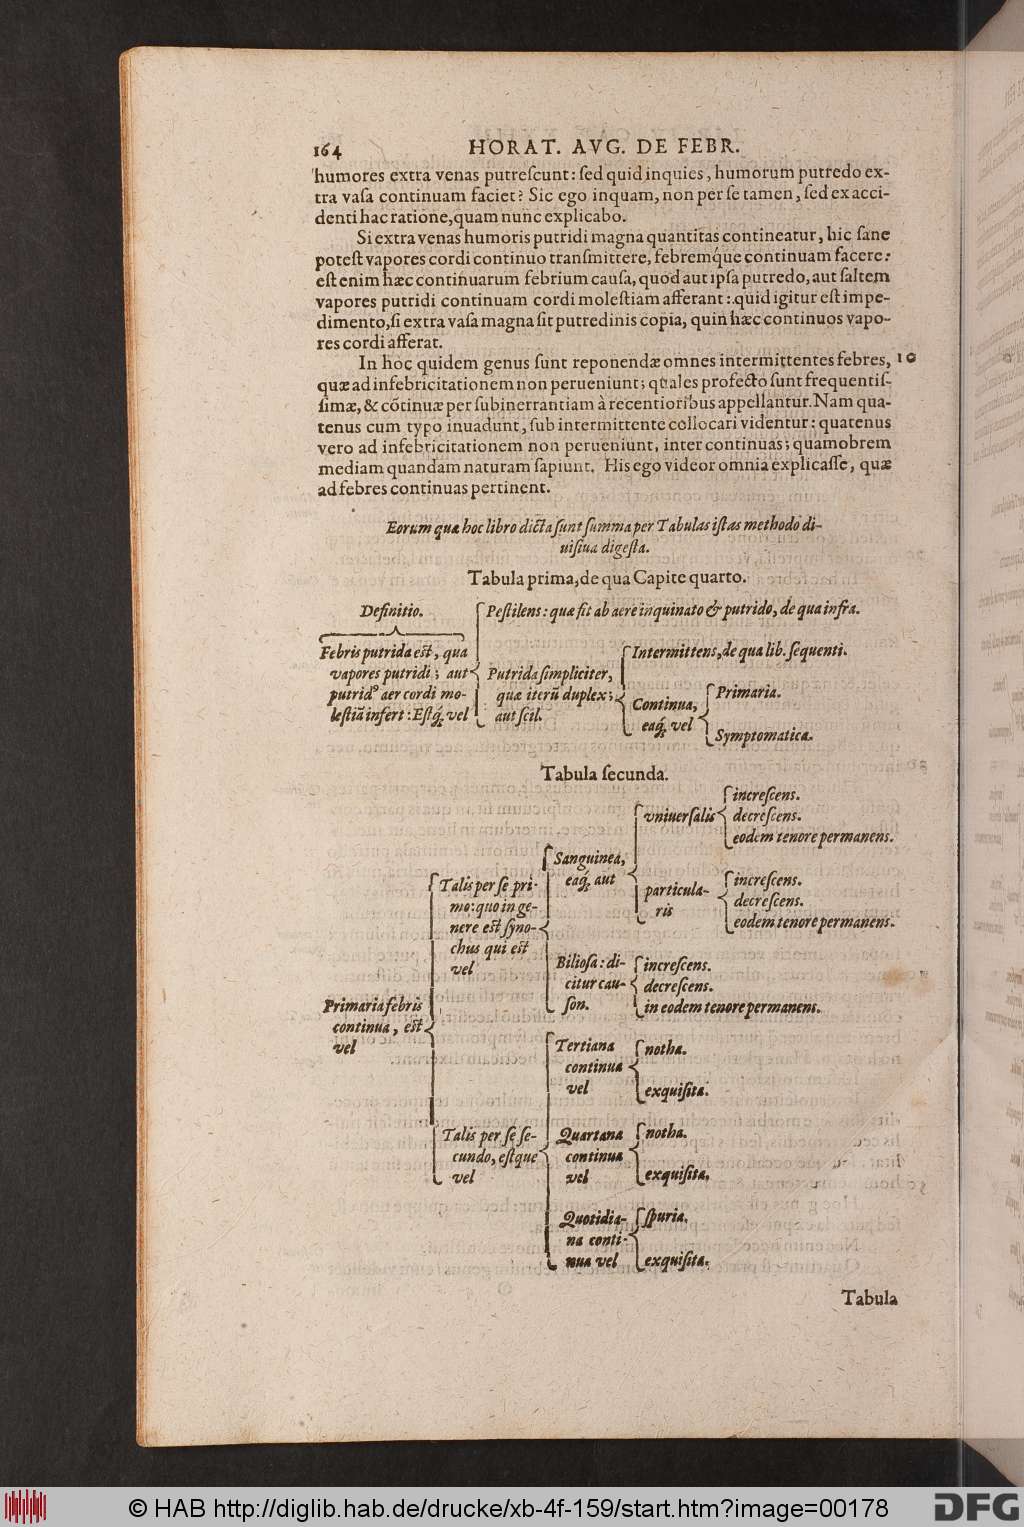 164 HORAT. AVG. DE FEBR.
humores extra venas putreſcunt: ſed quid inquies, humorum putredo ex-
tra vaſa continuam faciet? Sic ego inquam, non per ſe tamen, ſed ex acci-
denti hac ratione, quam nunc explicabo.
Si extra venas humoris putridi magna quantitas contineatur, hic ſane
poteſt vapores cordi continuo tranſmittere, febremq́ue continuam facere:
eſt enim hæc continuarum febrium cauſa, quod aut ipſa putredo, aut ſaltem
vapores putridi continuam cordi moleſtiam afferant: quid igitur eſt impe-
dimento, ſi extra vaſa magna ſit putredinis copia, quin hæc continuos vapo-
res cordi afferat.
In hoc quidem genus ſunt reponendæ omnes intermittentes febres, 10
quæ ad infebricitationem non perueniunt; quales profecto ſunt frequentiſ-
ſimæ, & cõtinuæ per ſubinerrantiam à recentioribus appellantur. Nam qua-
tenus cum typo inuadunt, ſub intermittente collocari videntur: quatenus
vero ad infebricitationem non perueniunt, inter continuas; quamobrem
mediam quandam naturam ſapiunt. His ego videor omnia explicaſſe, quæ
ad febres continuas pertinent.
Eorum quæ hoc libro dicta ſunt ſumma per Tabulas iſtas methodo di-
uiſiua digeſta.
Tabula prima, de qua Capite quarto.
Definitio.
Febris putrida est, qua
vapores putridi; aut
putridꝰ aer cordi mo-
leſtiã infert: Eſtq́, vel
Peſtilens: quæ fit ab aere inquinato & putrido, de qua infra.
Putrida ſimpliciter,
quæ iterũ duplex;
aut ſcil.
Intermittens, de qua lib. ſequenti.
Continua,
eaq́, vel
Primaria.
Symptomatica.
Tabula ſecunda.
Primaria febris
continua, est
vel
Talis per ſe pri-
mo: quo in ge-
nere est ſyno-
chus qui est
vel
Sanguinea,
eaq́, aut
vniuerſalis
increſcens.
decreſcens.
eodem tenore permanens.
particula-
ris
increſcens.
decreſcens.
eodem tenore permanens.
Bilioſa: di-
citur cau-
ſon.
increſcens.
decreſcens.
in eodem tenore permanens.
Talis per ſe ſe-
cundo, eſtque
vel
Tertiana
continua
vel
notha.
exquiſita.
Quartana
continua
vel
notha.
exquiſita.
Quotidia-
na conti-
nua vel
ſpuria.
exquiſita.
Tabula
© HAB http://diglib.hab.de/drucke/xb-4f-159/start.htm?image=00178
DFG